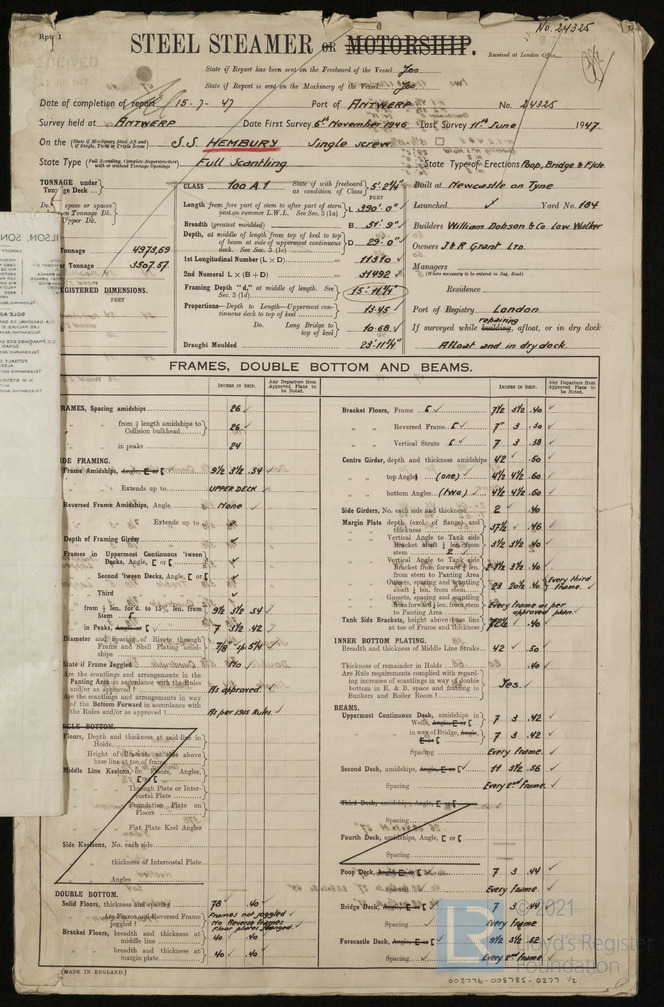 Rpt. 1
No. 24325
STEEL STEAMER OR MOTORSHIP.
Received at London Office
State if Report has been sent on the Freeboard of the Vessel Yes
State if Report is sent on the Machinery of the Vessel Yes
Date of completion of report 15-7-47 Port of ANTWERP No. 24325
Survey held at ANTWERP Date First Survey 6th November 1946 Last Survey 11th June 1947
On the (State if Machinery fitted Aft and if Single, Twin or Triple Screw) S.S. HEMBURY Single screw
State Type (Full Scantling, Complete Superstructure with or without Tonnage Openings) Full Scantling State Type of Erections Poop, Bridge & F'cle.
TONNAGE under Tonnage Deck
CLASS 100 A.1 State if with freeboard as condition of Class 5'. 2¼"
Built at Newcastle on Tyne
Length from fore part of stem to after part of stern post on summer L.W.L. See Sec. 3 (1a) L 390'. 0"
Launched Yard No. 184
Breadth (greatest moulded) B 51'. 9"
Builders William Dobson & Co Low Walker
Depth, at middle of length from top of keel to top of beam at side of uppermost continuous deck. See Sec. 3 (1c) D 29'. 0"
Owners J & R Grant Ltd.
Tonnage 4973,69
1st Longitudinal Number (L × D) 11310
Managers
(Where necessary to be entered in Reg. Book)
Tonnage 3507,57
2nd Numeral L × (B + D) 31492
Residence
REGISTERED DIMENSIONS.
FEET
Framing Depth "d," at middle of length. See Sec. 3 (1d) 15'. 11¼"
Proportions—Depth to Length—Uppermost continuous deck to top of keel 13.45
Port of Registry London
Do. Long Bridge to top of keel 10.68
If surveyed while repairing building, afloat, or in dry dock
Draught Moulded 23'. 11¼"
Afloat and in dry dock.
FRAMES, DOUBLE BOTTOM AND BEAMS.
INCHES IN SHIP.
Any Departure from Approved Plans to be Noted.
INCHES IN SHIP.
Any Departure from Approved Plans to be Noted.
FRAMES, Spacing amidships 26
from ⅕ length amidships to Collision bulkhead 26
in peaks 24
SIDE FRAMING.
Frame Amidships, Angle, E or [ 9½ 3½ .54
Extends up to UPPER DECK
Reversed Frame Amidships, Angle None
Extends up to
Depth of Framing Girder
Frames in Uppermost Continuous 'tween Decks, Angle, [ or [
Second 'tween Decks, Angle, [ or [
Third
from ⅕ len. for'd. to 15% len. from Stem 9½ 3½ .54
in Peaks, Angle or [ 7 3½ .42
Diameter and Spacing of Rivets through Frame and Shell Plating amidships 7/8
State if Frame Joggled No
Are the scantlings and arrangements in the Panting Area in accordance with the Rules and/or as approved? As approved
Are the scantlings and arrangements in way of the Bottom Forward in accordance with the Rules and/or as approved? As per 1915 Rules
SINGLE BOTTOM.
Floors, Depth and thickness at mid-line in Holds
Height of Brackets at side above base line at toe of frame
Middle Line Keelson, on Floors, Angles, [ or [
Through Plate or Intercostal Plate
Foundation Plate on Floors
Flat Plate Keel Angles
Side Keelsons, No. each side
thickness of Intercostal Plate
Angles
DOUBLE BOTTOM.
Solid Floors, thickness and spacing 78 .40
Are Frame and Reversed Frame joggled? Frames not joggled No Reverse Frames Floor plates flanged.
Bracket Floors, breadth and thickness at middle line 40 .40
breadth and thickness at margin plate 40 .40
Bracket Floors, Frame [ 7½ 3½ .40
Reversed Frame [ 7" 3 .30
Vertical Struts [ 7 3 .38
Centre Girder, depth and thickness amidships 42 .50
top Angles (one) 4½ 4½ .60
bottom Angles (two) 4½ 4½ .60
Side Girders, No. each side and thickness 2 .40
Margin Plate depth (excl. of flange) and thickness 37½ .46
Vertical Angle to Tank side Bracket abaft ¼ len. from stem 2 3½ 3½ .40
Vertical Angle to Tank side Bracket from forward ¼ len. from stem to Panting Area 2-3½ 3½ .40
Gussets, spacing and scantling abaft ¼ len. from stem 23 20½ .40 Every third frame.
Gussets, spacing and scantling from forward ¼ len. from stem to Panting Area Every frame as per approved plan.
Tank Side Brackets, height above base line at toe of Frame and thickness 72½ .40
INNER BOTTOM PLATING.
Breadth and thickness of Middle Line Strake 42 .50
Thickness of remainder in Holds .40
Are Rule requirements complied with regarding increases of scantlings in way of double bottom in E. & B. space and framing in Bunkers and Boiler Room? Yes.
BEAMS.
Uppermost Continuous Deck, amidships in Wells, Angle, E or [ 7 3 .42
in way of Bridge, Angle, E or [ 7 3 .42
Spacing Every frame.
Second Deck, amidships, Angle, E or [ 11 3½ .56
Spacing Every 2nd frame.
Third Deck, amidships, Angle, E or [
Spacing
Fourth Deck, amidships, Angle, [ or [
Spacing
Poop Deck, Angle, E or [ 7 3 .44
Spacing Every frame.
Bridge Deck, Angle, E or [ 7 3 .44
Spacing Every frame
Forecastle Deck, Angle, E or [ 9½ 3½ .52
Spacing Every 2nd frame
(MADE IN ENGLAND.)
© 2021
Lloyd's Register
Foundation